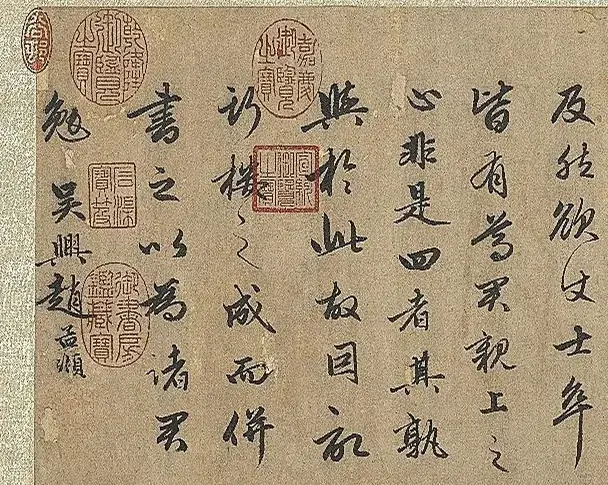 及然欲使士卒
皆有尊君親上之
心非是四者其孰
與於此故因記
斯樓之成而併
書之以為諸君
勉 吳興趙孟頫
嘉慶御覽之寶
宣統御覽之寶
乾隆御覽之寶
石渠寶笈
御書房鑑藏寶